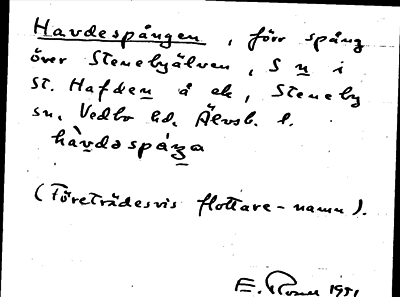 Havdespången, förr spång
över Stenebyälven, S n i
St. Hafden å ek, Steneby
sn. Vedbo hd. Älvsb. l.
hàvdəspáŋa
(Företrädesvis flottare-namn).
E. 1951